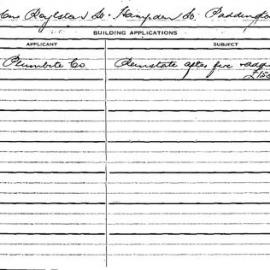 Roylston St. Hampden St. Paddington
BUILDING APPLICATIONS
APPLICANT SUBJECT
Plumbrite Co Reinstate after fire